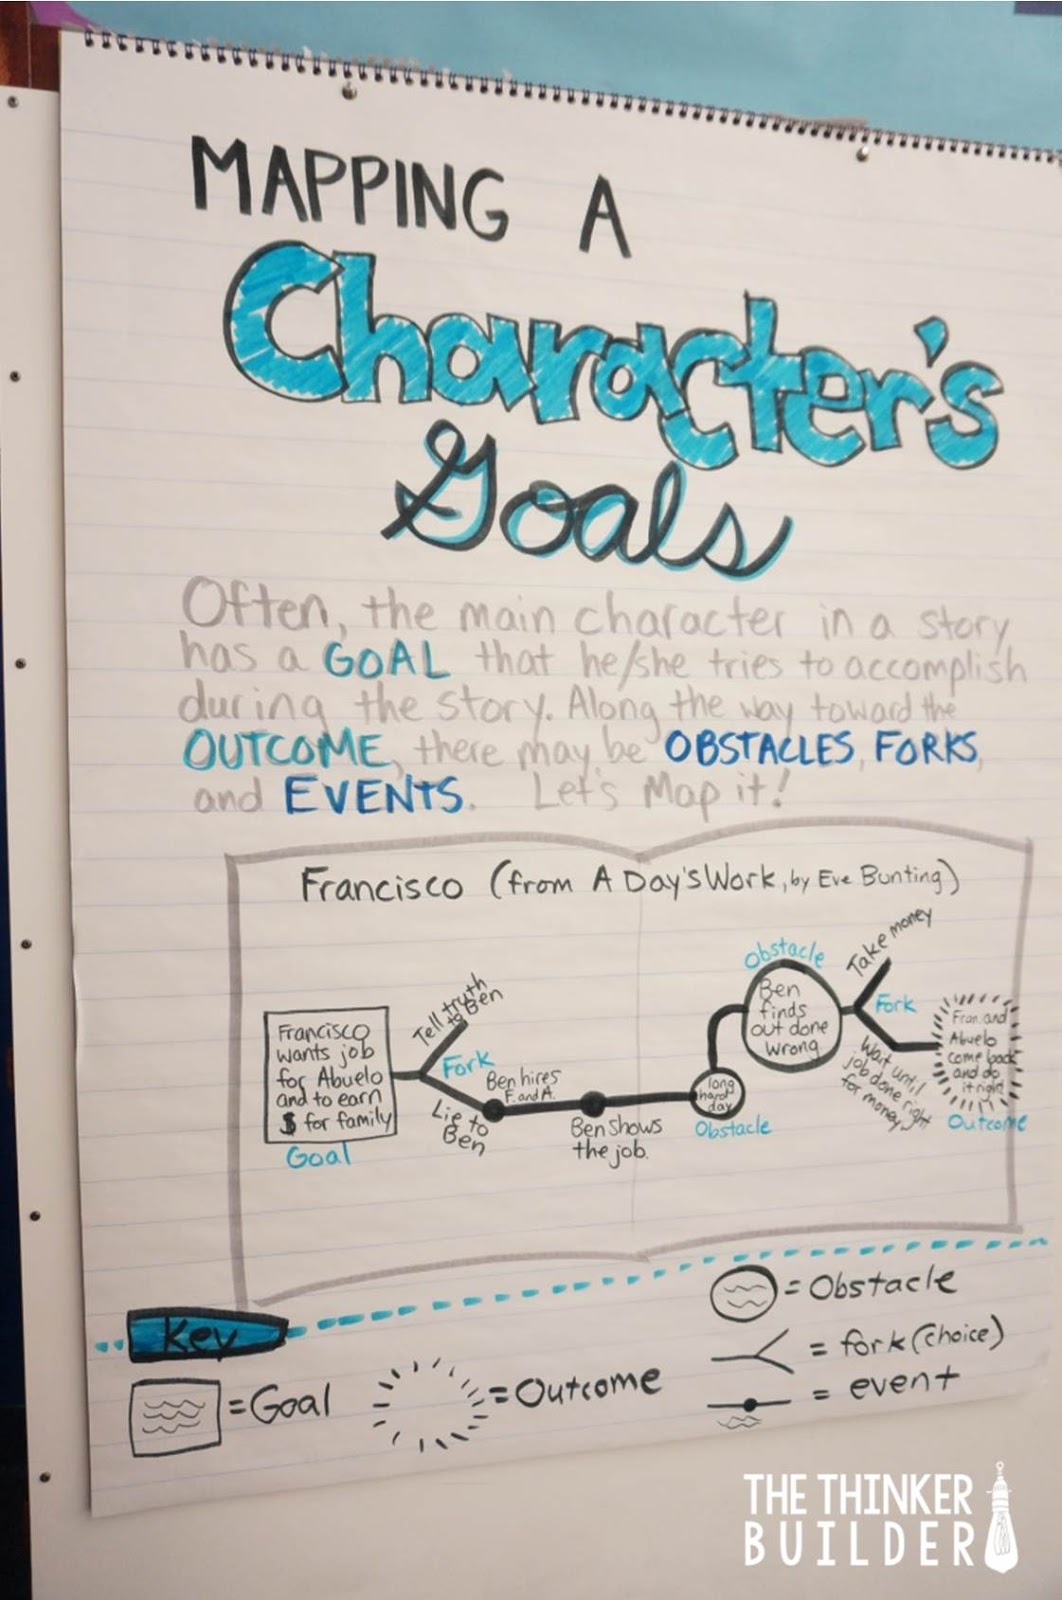 MAPPING A
Character's
Goals
Often, the main character in a story
has a GOAL that he/she tries to accomplish
during the story. Along the way toward the
OUTCOME, there may be OBSTACLES, FORKS,
and EVENTS. Let's Map it!
Francisco (from A Day's Work, by Eve Bunting)
Francisco
wants job
for Abuelo
and to earn
$ for family
Goal
Tell truth
to Ben
Fork
Lie to
Ben
Ben hires
F. and A.
Ben shows
the job.
long
hard
day
Obstacle
Obstacle
Ben
finds
out done
wrong
Take money
Fork
Wait until
job done right
for money
Fran. and
Abuelo
come back
and do
it right
Outcome
Key
= Goal
= Outcome
= Obstacle
= fork (choice)
= event
THE THINKER
BUILDER